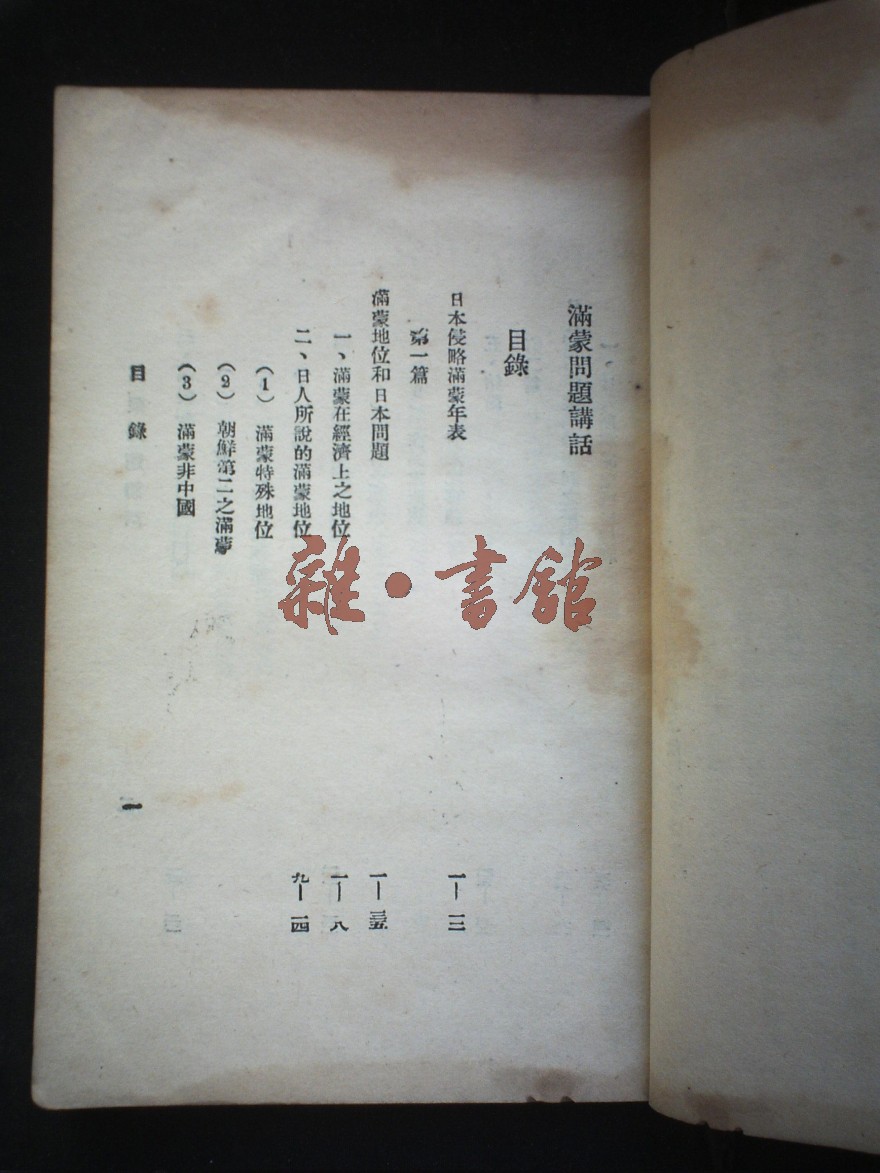 滿蒙問題講話
目錄
日本侵略滿蒙年表 一—三
第一篇
滿蒙地位和日本問題 一—三五
一、滿蒙在經濟上之地位 一—八
二、日人所說的滿蒙地位 九—一四
(1) 滿蒙特殊地位
(2) 朝鮮第二之滿蒙
(3) 滿蒙非中國
目錄 一
雜·書館